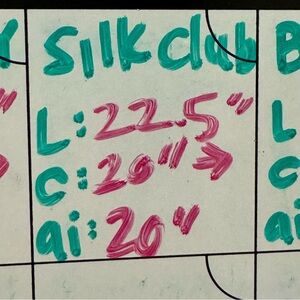 Silk Club B
L: 22.5" L
C: 20" → C
ai: 20" ai